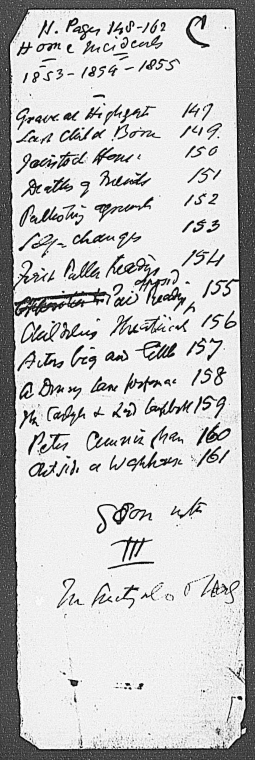 N. Pages 148-162 C
Home Incidents
1853-1854-1855
Grave at Highgate 147
Last child Born 149
Tavistock House 150
Deaths of Friends 151
152
Self-changes 153
First Public Readings 154
Paid Readings opposed 155
Children's Theatricals 156
Actors big and little 157
A Drury Lane 158
Mr Carlyle & Lord Campbell 159
Peter Cunningham 160
Outside a Workhouse 161
III